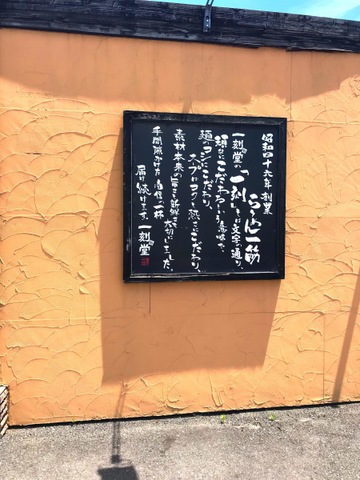 昭和四十六年創業
らーめん一筋
一刻堂の「一刻」とは文字通り、
頑なにこだわるという意味で、
麺のコシにこだわり、
スープのコク・熱さにこだわり、
素材本来の旨さと新鮮さを大切にしました。
手間隙かけた自信の一杯
届け続けます。一刻堂